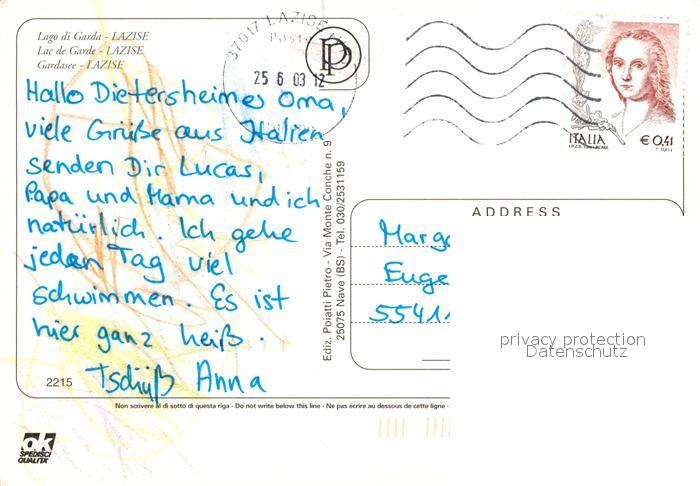 Lago di Garda - LAZISE
Lac de Garde - LAZISE
Gardasee - LAZISE
37017 LAZISE
Poste
25 6 03 12
PP
ITALIA
€ 0,41
Hallo Dietersheimer Oma,
viele Grüße aus Italien
senden Dir Lucas,
Papa und Mama und ich
natürlich. Ich gehe
jeden Tag viel
schwimmen. Es ist
hier ganz heiß.
Tschüß Anna
2215
Ediz. Poiatti Pietro - Via Monte Conche n. 9
25075 Nave (BS) - Tel. 030/2531159
ADDRESS
Marga
Euge
55411
privacy protection
Datenschutz
Non scrivere al di sotto di questa riga - Do not write below this line - Ne pas écrire au dessous de cette ligne -
ok
SPEDISCI
QUALITÀ